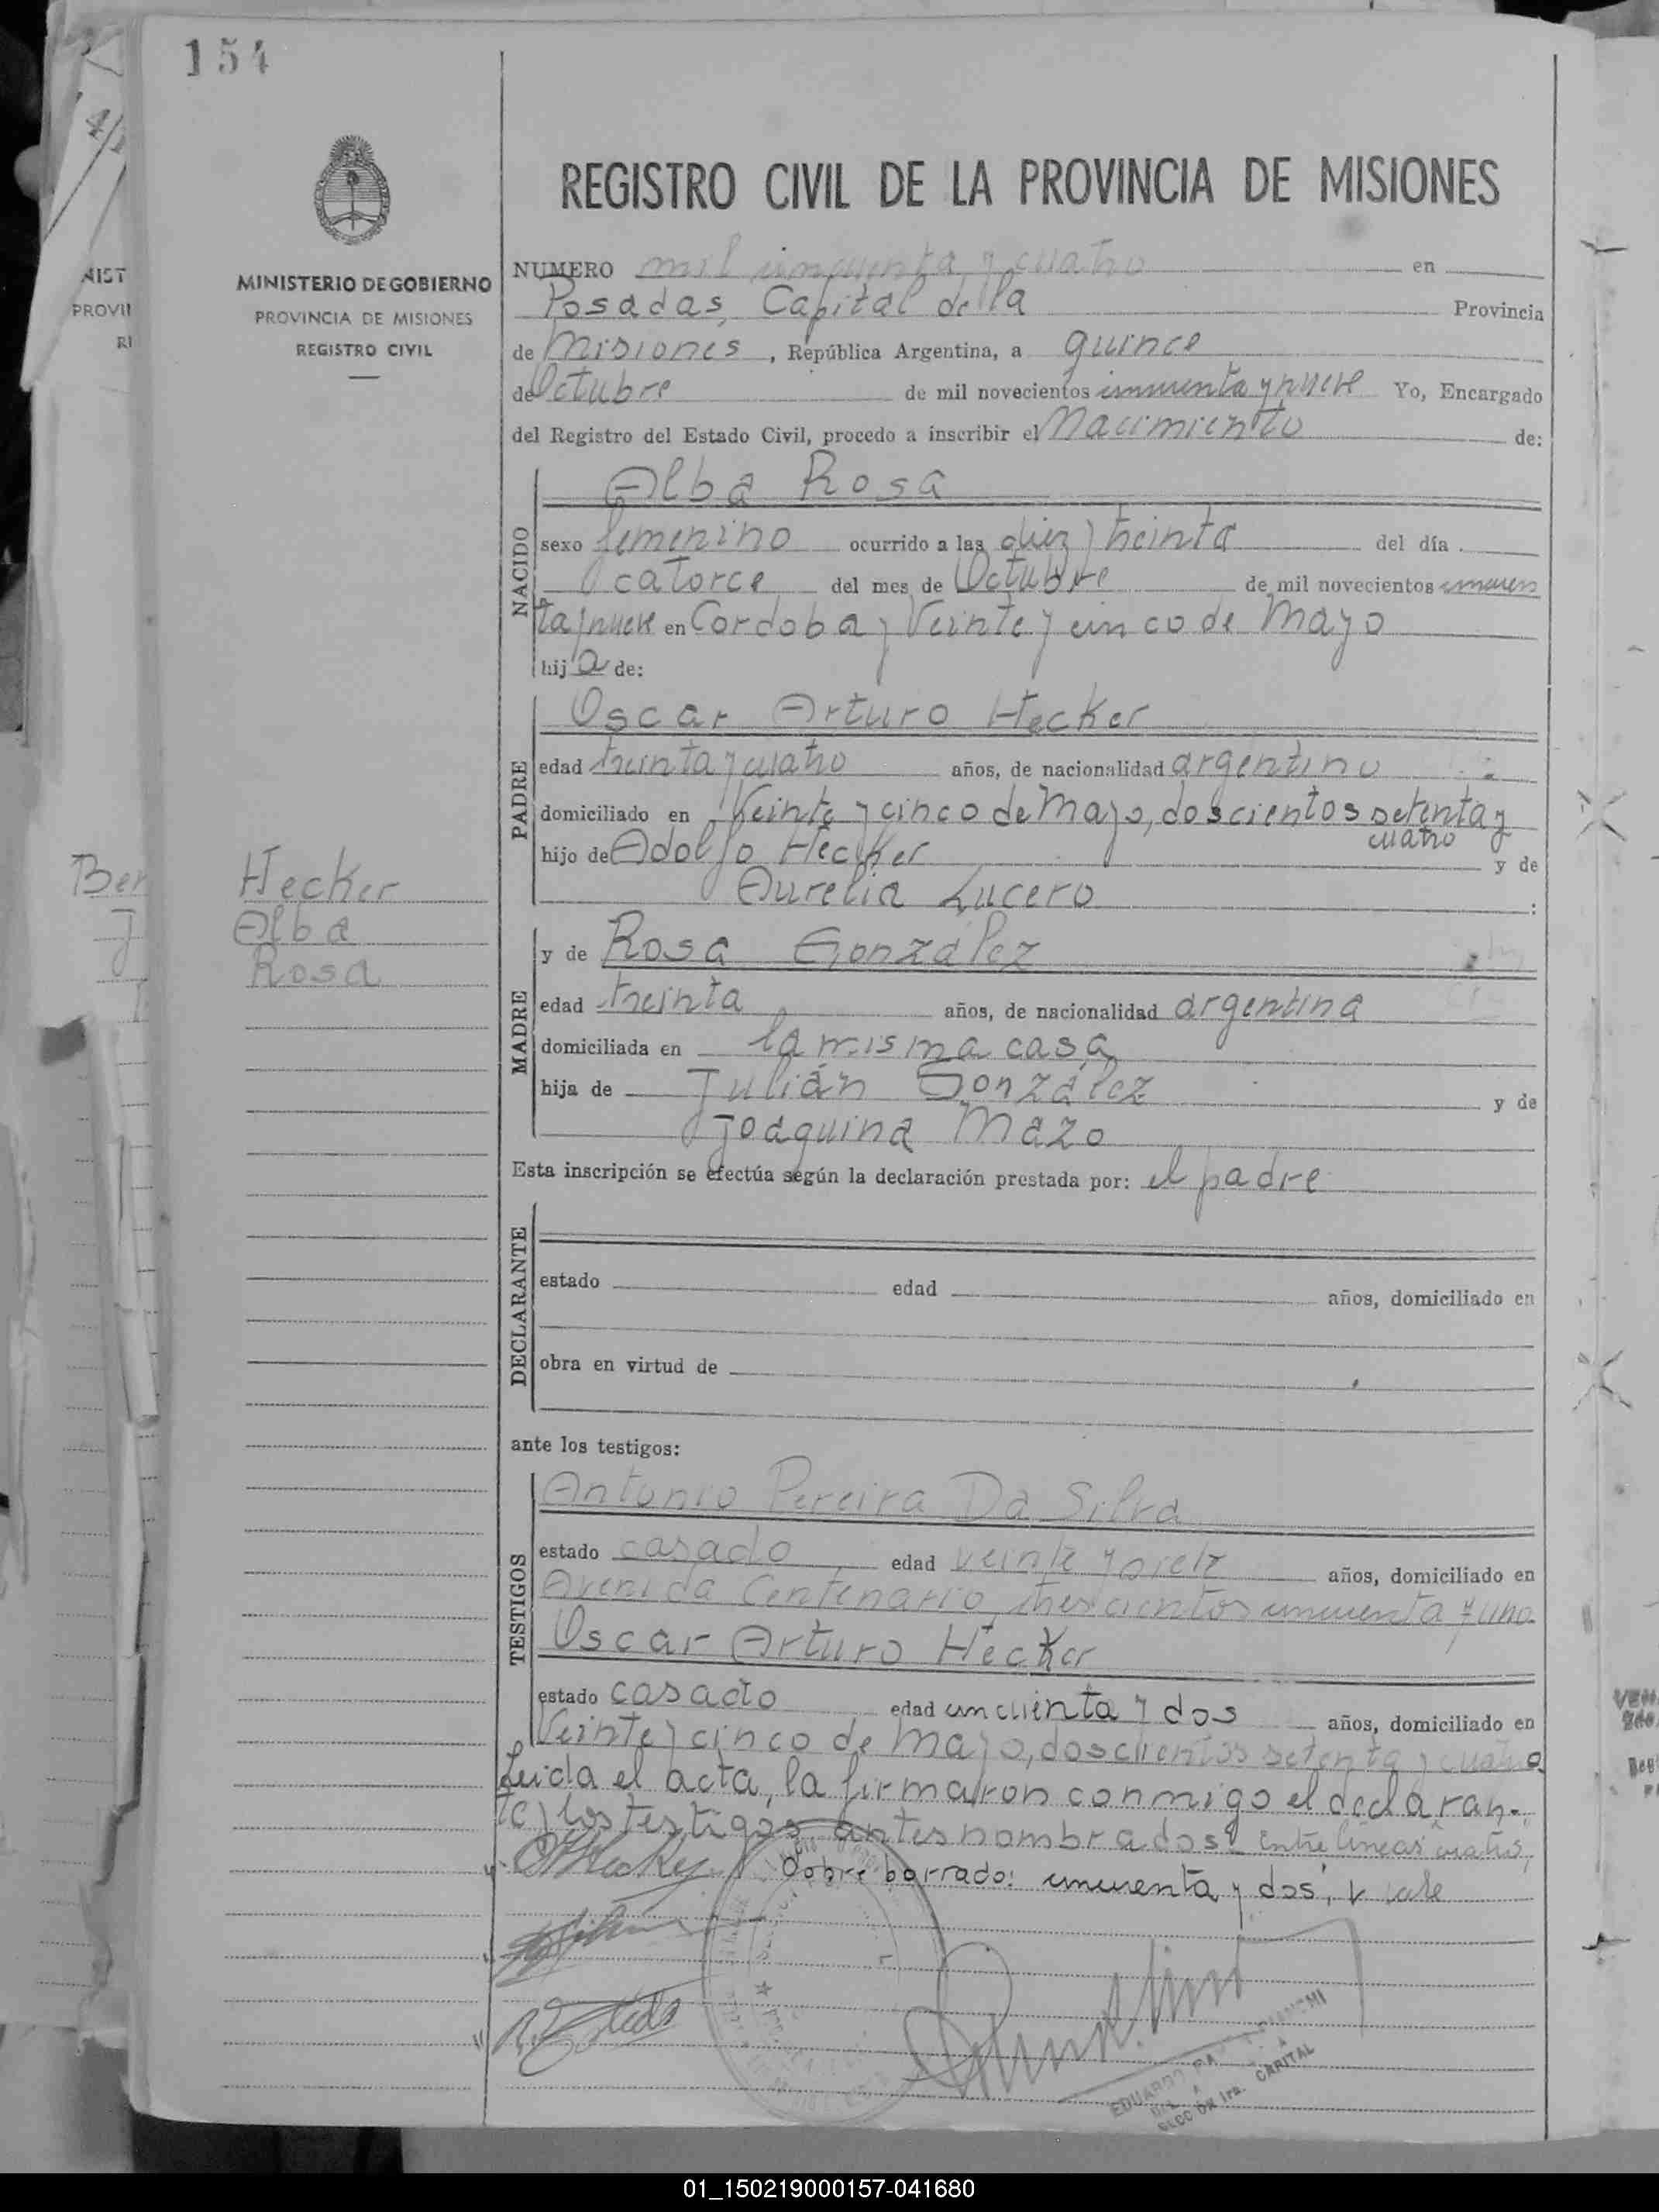 154
MINISTERIO DE GOBIERNO
PROVINCIA DE MISIONES
REGISTRO CIVIL
Hecker
Alba
Rosa
REGISTRO CIVIL DE LA PROVINCIA DE MISIONES
NUMERO mil cincuenta y cuatro en
Posadas, Capital de la Provincia
de Misiones, República Argentina, a quince
de Octubre de mil novecientos cincuenta y nueve Yo, Encargado
del Registro del Estado Civil, procedo a inscribir el Nacimiento de:
NACIDO
Alba Rosa
sexo femenino ocurrido a las diez y treinta del día
catorce del mes de Octubre de mil novecientos cincuen
ta y nueve en Cordoba y Veinte y cinco de Mayo
hija de:
PADRE
Oscar Arturo Hecker
edad treinta y cuatro años, de nacionalidad argentino
domiciliado en Veinte y cinco de Mayo, doscientos setenta y
cuatro
hijo de Adolfo Hecker y de
Aurelia Lucero :
MADRE
y de Rosa González
edad treinta años, de nacionalidad argentina
domiciliada en la misma casa
hija de Julián González y de
Joaquina Mazo
Esta inscripción se efectúa según la declaración prestada por: el padre
DECLARANTE
estado edad años, domiciliado en
obra en virtud de
ante los testigos:
TESTIGOS
Antonio Pereira Da Silva
estado casado edad veinte y siete años, domiciliado en
Avenida Centenario, trescientos cincuenta y uno
Oscar Arturo Hecker
estado casado edad cincuenta y dos años, domiciliado en
Veinte y cinco de Mayo, doscientos setenta y cuatro
Leida el acta, la firmaron conmigo el declaran-
te y los testigos antes nombrados. Entre lineas: cuatro,
sobre borrado: cincuenta y dos, vale
EDUARDO
SECCION 1ra. CAPITAL
01_150219000157-041680